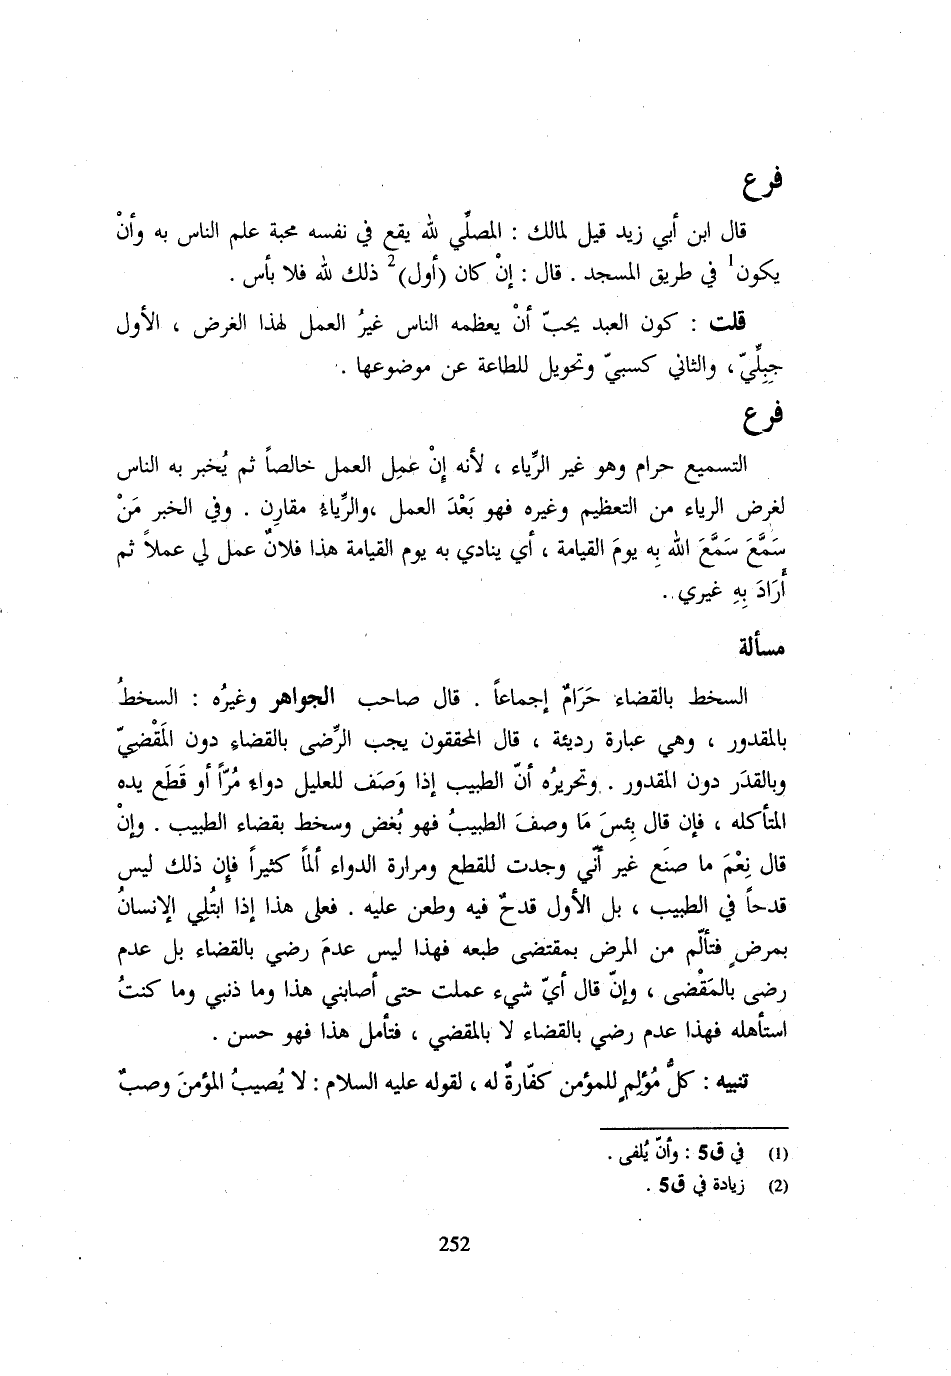 فرع
قال ابن أبي زيد قيل لمالك : المصلِّي لله يقع في نفسه محبة علم الناس به وأنْ
يكون1 في طريق المسجد . قال : إنْ كان (أول)2 ذلك لله فلا بأس .
قلت : كون العبد يحبّ أنْ يعظمه الناس غيرُ العمل لهذا الغرض ، الأول
جِبِلِّيّ ، والثاني كسبيّ وتحويل للطاعة عن موضوعها .
فرع
التسميع حرام وهو غير الرِّياء ، لأنه إِنْ عَمِل العمل خالصاً ثم يُخبر به الناس
لغرض الرياء من التعظيم وغيره فهو بَعْدَ العمل ،والرِّياءُ مقارِن . وفي الخبر مَنْ
سَمَّعَ سَمَّعَ الله بِه يومَ القيامة ، أي ينادي به يوم القيامة هذا فلانٌ عمل لي عملاً ثم
أَرَادَ بِهِ غيري .
مسألة
السخط بالقضاء حَرَامٌ إجماعاً . قال صاحب الجواهر وغيرُه : السخطُ
بالمقدور ، وهي عبارة رديئة ، قال المحققون يجب الرِّضى بالقضاءِ دون المَقْضِيّ
وبالقدَر دون المقدور . وتحريرُه أنّ الطبيب إذا وَصَف للعليل دواءً مُرّاً أو قَطَع يده
المتأكله ، فإن قال بِئسَ مَا وصفَ الطبيبُ فهو بُغض وسخط بقضاء الطبيب . وإنْ
قال نِعْمَ ما صنَع غير أنّي وجدت للقطع ومرارة الدواء ألماً كثيراً فإن ذلك ليس
قدحاً في الطبيب ، بل الأول قدحٌ فيه وطعن عليه . فعلى هذا إذا ابتُلِي الإنسانُ
بمرضٍ فتألّم من المرض بمقتضى طبعه فهذا ليس عدمَ رضي بالقضاء بل عدم
رضى بالمَقْضى ، وإنّ قال أيّ شيء عملت حتى أصابني هذا وما ذنبي وما كنتُ
استأهله فهذا عدم رضي بالقضاء لا بالمقضي ، فتأمل هذا فهو حسن .
تنبيه : كلُّ مُؤلِمٍ للمؤمن كفّارةٌ له ، لقوله عليه السلام : لا يُصيبُ المؤمنَ وصبٌ
(1) في ق5 : وأنّ يُلفى .
(2) زيادة في ق5 .
252